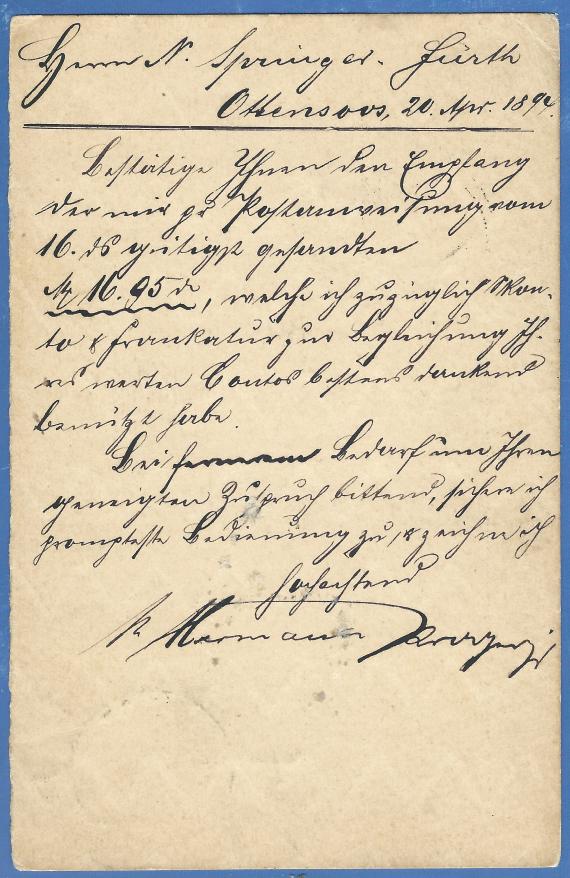 Herrn N. Springer. Fürth
Ottensoos, 20. Apr. 189
Bestätige Ihnen den Empfang
der mir pr Postanweisung vom
16. ds gütigst gesandten
M 16.95 d, welche ich zuzüglich Skon-
to & Frankatur zur Begleichung Ih-
res werten Contos bestens dankend
benützt habe.
Bei fernerem Bedarf um Ihren
geneigten Zuspruch bittend, sichere ich
prompteste Bedienung zu, & zeichne ich
Hochachtend
Hermann